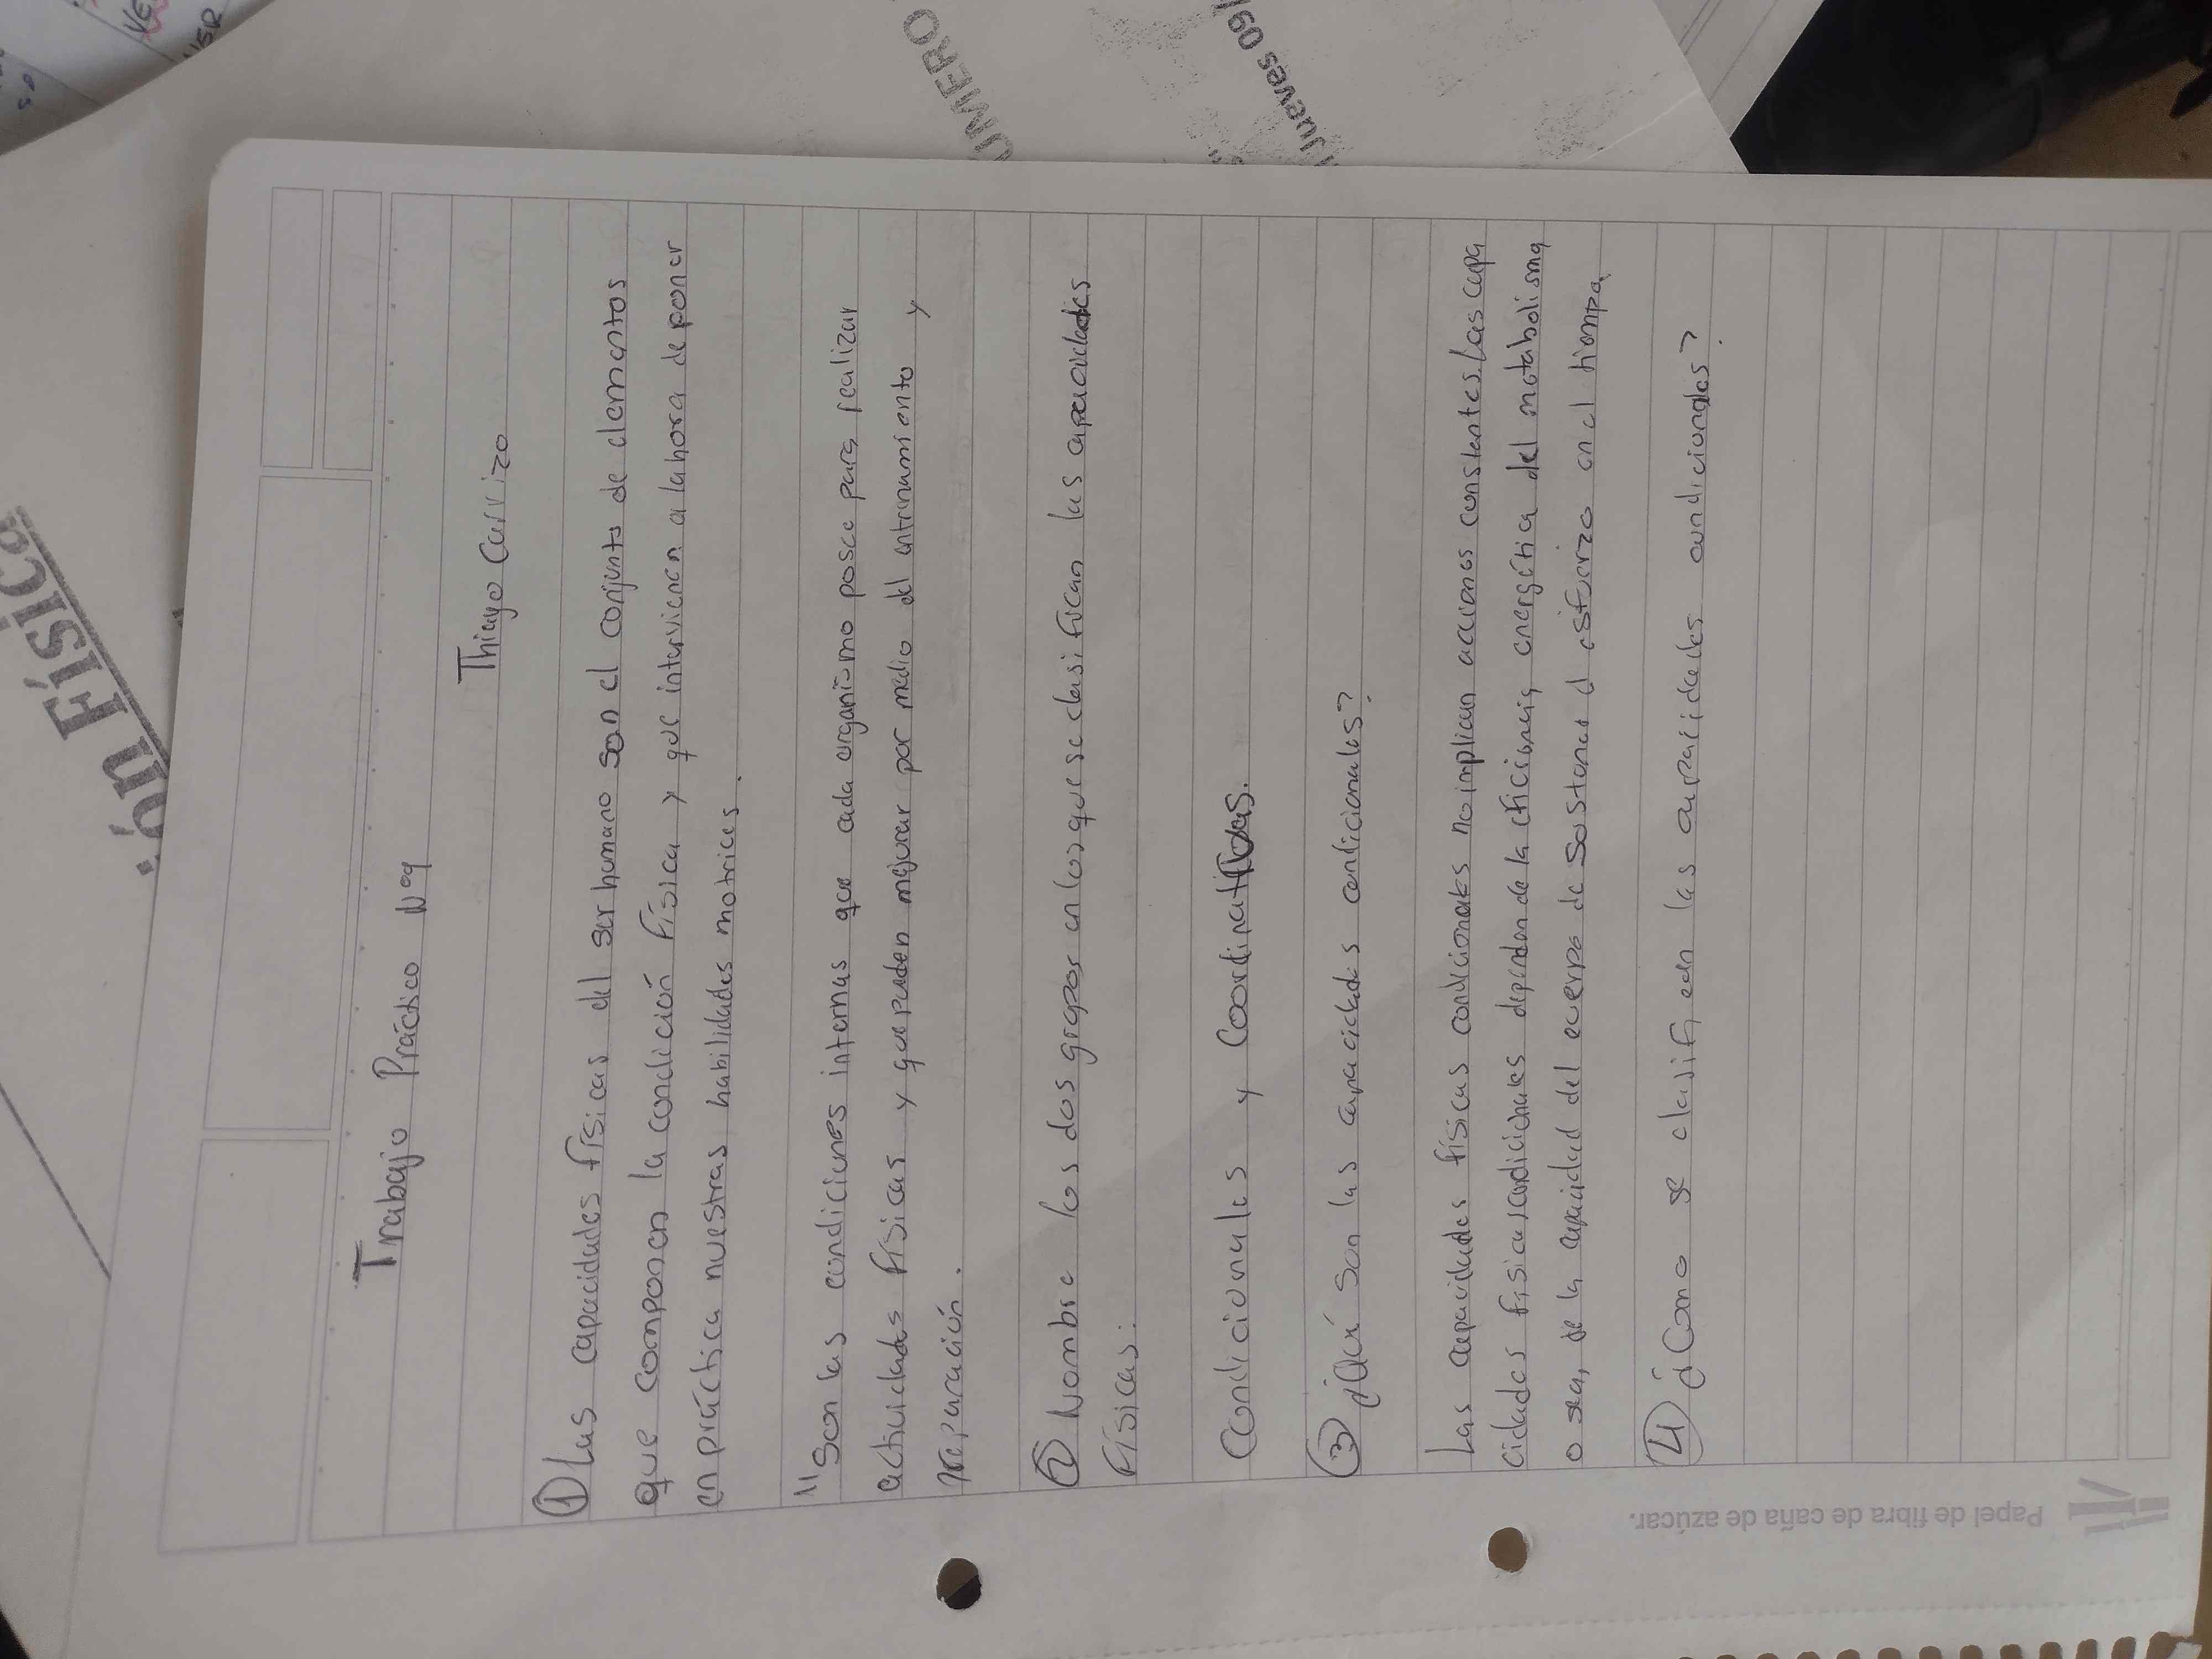 Trabajo Práctico Nº9
Thiago Carrizo
① Las capacidades físicas del ser humano son el conjunto de elementos
que componen la condición física y que intervienen a la hora de poner
en práctica nuestras habilidades motrices.
"Son las condiciones internas que cada organismo posee para realizar
actividades físicas y que pueden mejorar por medio del entrenamiento y
preparación.
② Nombre los dos grupos en los que se clasifican las capacidades
físicas:
Condicionales y Coordinativas.
③ ¿Qué son las capacidades condicionales?
Las capacidades físicas condicionales no implican acciones constantes. Las capa
cidades físicas condicionales dependen de la eficiencia energética del metabolismo
o sea, de la capacidad del cuerpo de sostener el esfuerzo en el tiempo.
④ ¿Como se clasifican las capacidades condicionales?
Papel de fibra de caña de azúcar.
ón Física
ÚMERO
Jueves 09/